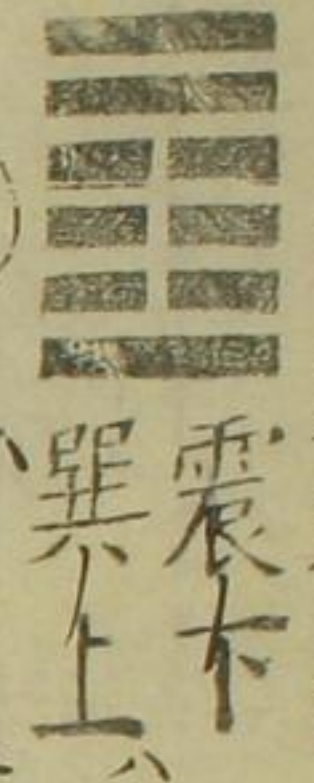 震下
巽上